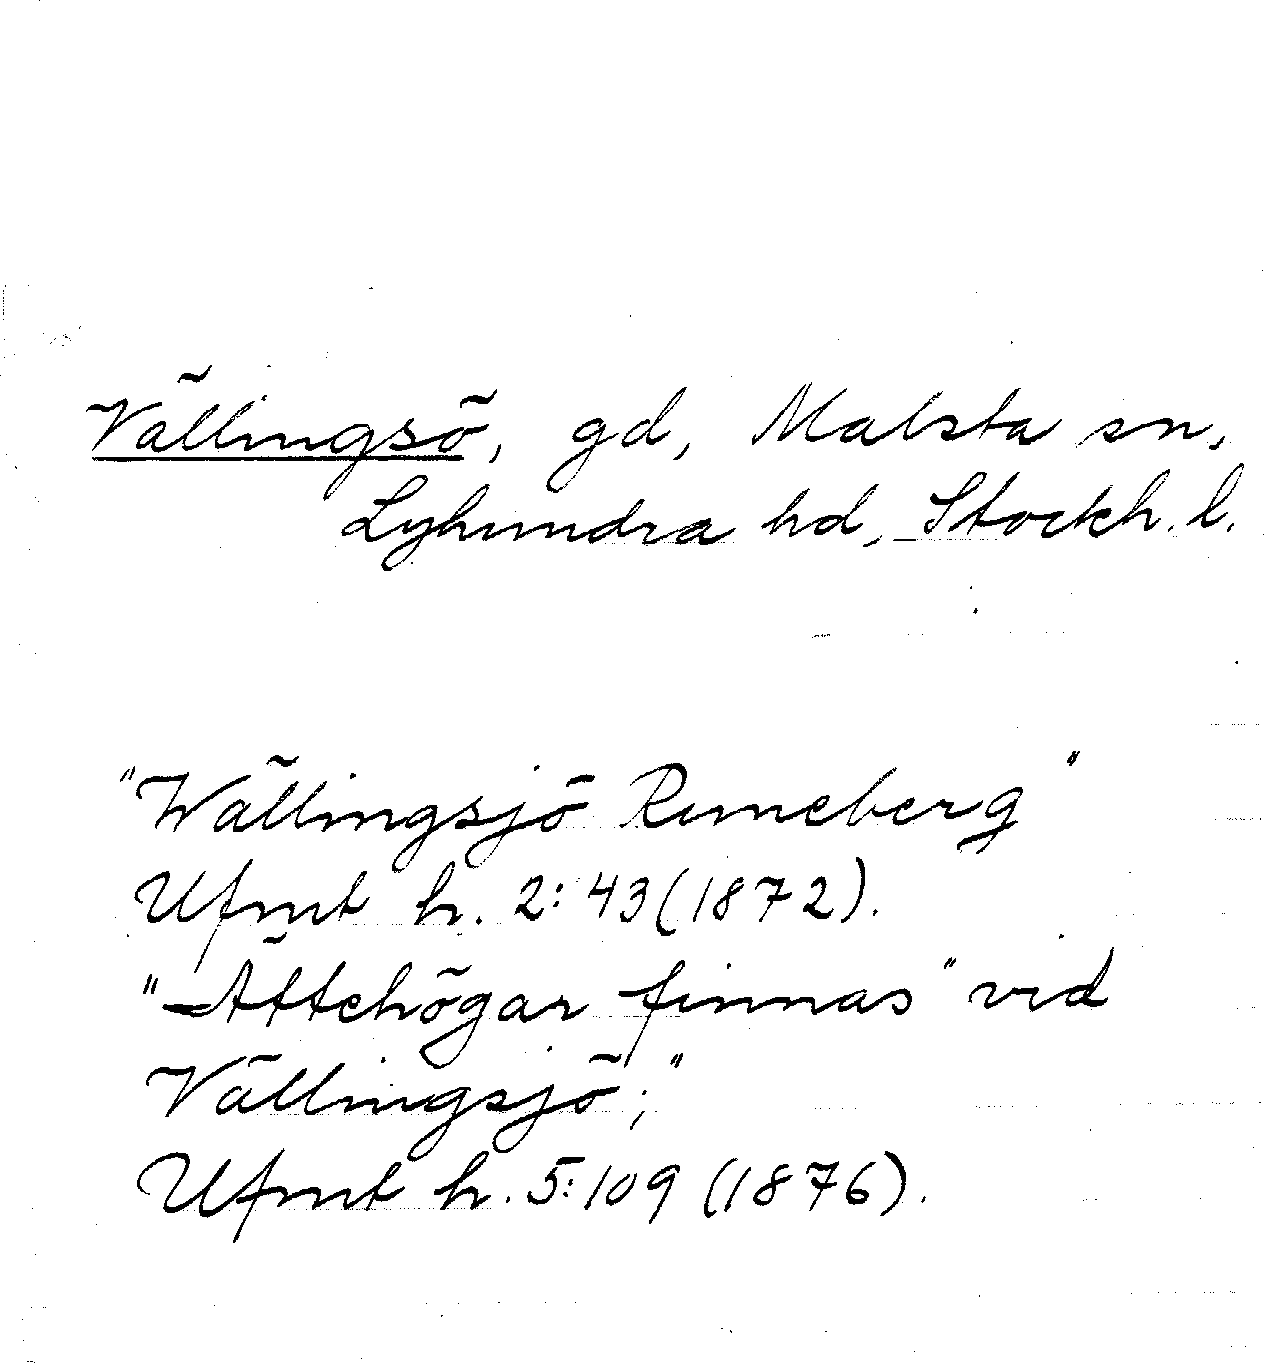 Vällingsö, gd, Malsta sn,
Lyhundra hd, Stockh. l.
"Wällingsjö Runeberg"
Ufmt h. 2:43 (1872).
"Ättehögar finnas" vid
Vällingsjö;"
Ufmt h. 5:109 (1876).